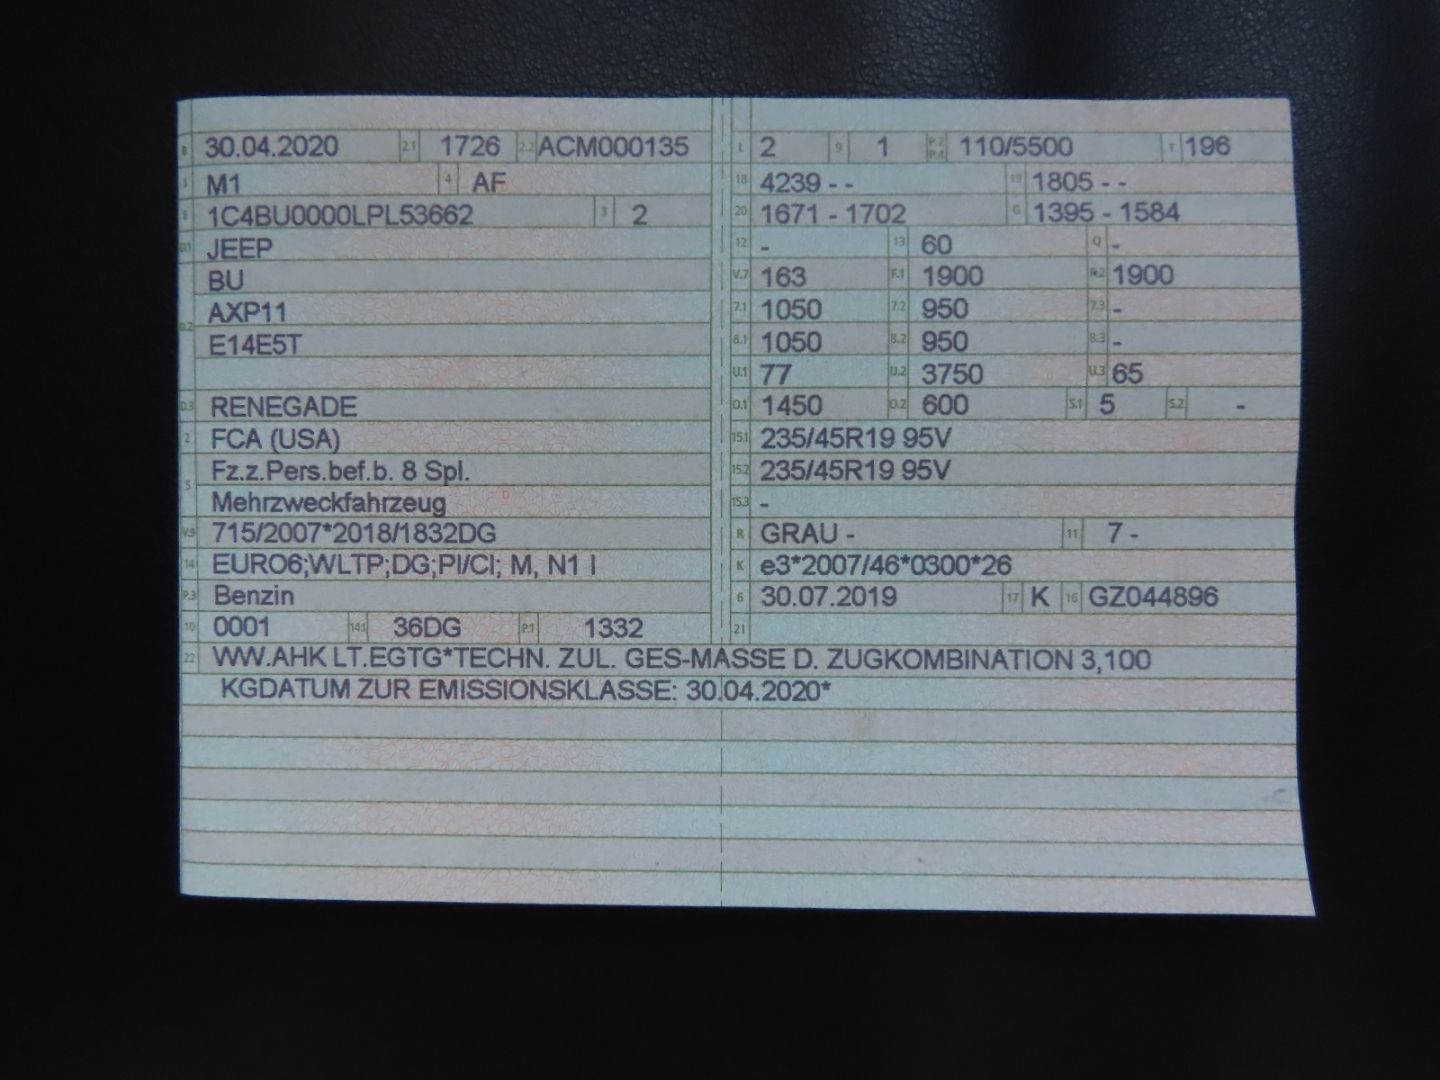 B 30.04.2020 2.1 1726 2.2 ACM000135
J M1 4 AF
E 1C4BU0000LPL53662 3 2
D.1 JEEP
BU
AXP11
D.2 E14E5T
D.3 RENEGADE
2 FCA (USA)
Fz.z.Pers.bef.b. 8 Spl.
5 Mehrzweckfahrzeug
V.9 715/2007*2018/1832DG
14 EURO6;WLTP;DG;PI/CI; M, N1 I
P.3 Benzin
10 0001 14.1 36DG P.1 1332
L 2 9 1 P.2 P.4 110/5500 T 196
18 4239 - - 19 1805 - -
20 1671 - 1702 G 1395 - 1584
12 - 13 60 Q -
V.7 163 F.1 1900 F.2 1900
7.1 1050 7.2 950 7.3 -
8.1 1050 8.2 950 8.3 -
U.1 77 U.2 3750 U.3 65
O.1 1450 O.2 600 S.1 5 S.2 -
15.1 235/45R19 95V
15.2 235/45R19 95V
15.3 -
R GRAU - 11 7 -
K e3*2007/46*0300*26
6 30.07.2019 17 K 16 GZ044896
21
22 WW.AHK LT.EGTG*TECHN. ZUL. GES-MASSE D. ZUGKOMBINATION 3,100
KGDATUM ZUR EMISSIONSKLASSE: 30.04.2020*